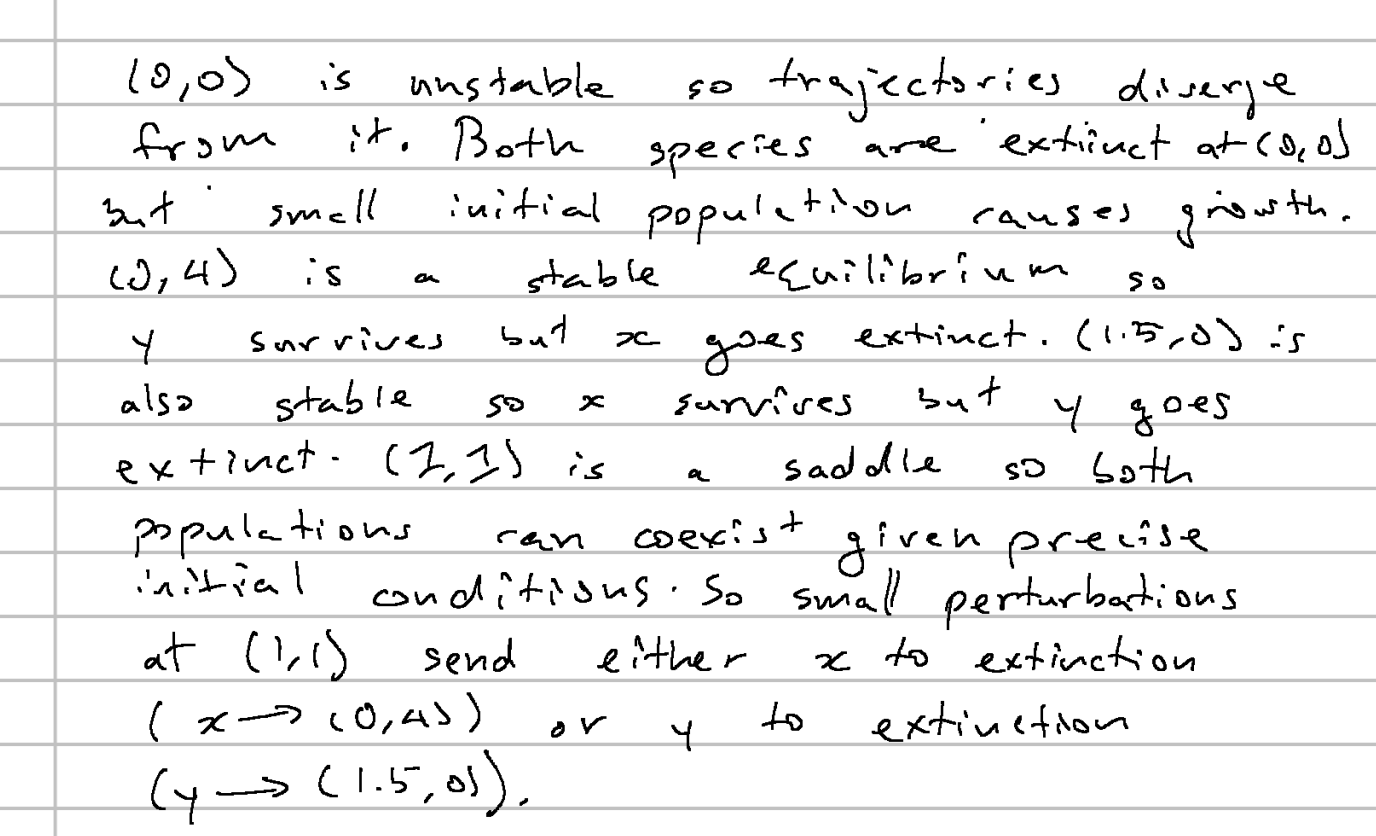 (0,0) is unstable so trajectories diverge
from it. Both species are extinct at (0,0)
but small initial population causes growth.
(0,4) is a stable equilibrium so
y survives but x goes extinct. (1.5,0) is
also stable so x survives but y goes
extinct. (1,1) is a saddle so both
populations can coexist given precise
initial conditions. So small perturbations
at (1,1) send either x to extinction
(x → (0,4)) or y to extinction
(y → (1.5,0)).